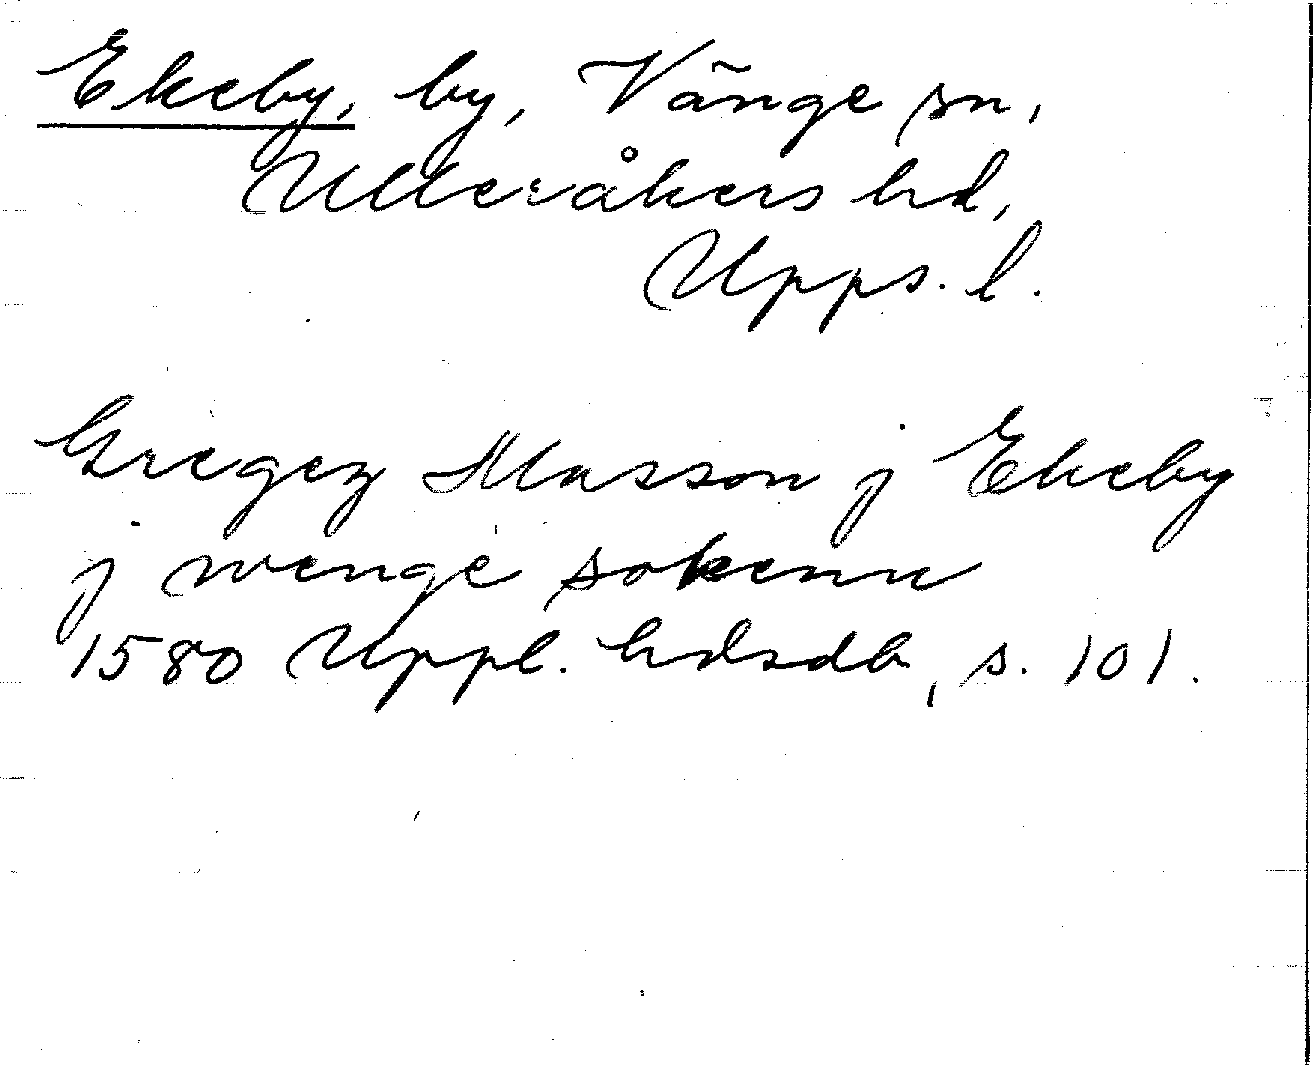 Ekeby, by, Vänge sn,
Ulleråkers hd,
Upps. l.
Gregez Masson j Ekeby
j wenge sokenn
1580 Uppl. hdsdb, s. 101.